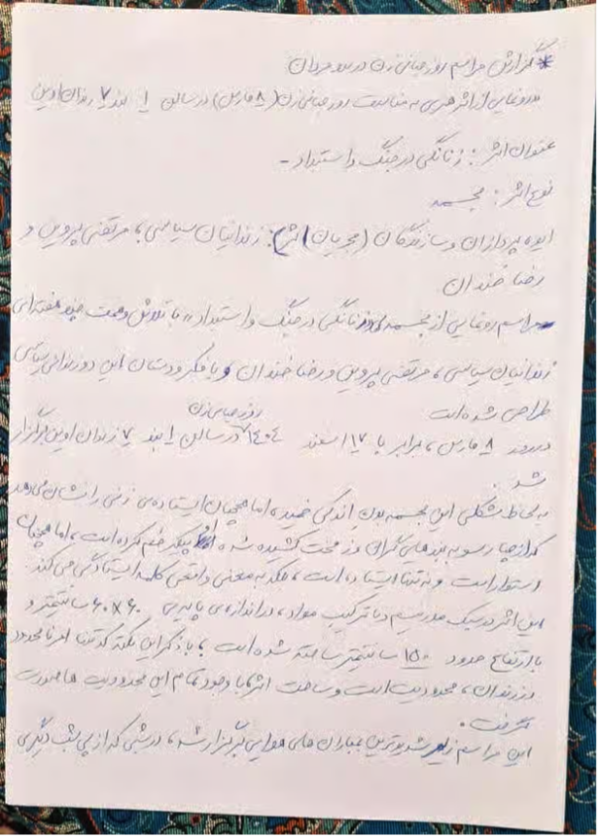 * گزارش مراسم روز جهانی زن در بند مردان
رونمایی از اثر هنری به مناسبت روز جهانی زن (۸ مارس) در سالن ۱ بند ۷ زندان اوین
عنوان اثر: زنانگی در جنگ و استبداد -
نوع اثر: مجسمه
ایده پردازان و سازندگان (مجریان اثر): زندانیان سیاسی، مرتضی پروین و
رضا خندان
مراسم رونمایی از مجسمه‌ی زنانگی در جنگ و استبداد، با تلاش و همت چند هفته‌ای
زندانیان سیاسی، مرتضی پروین و رضا خندان و با فکر و دستان این دو زندانی سیاسی
طراحی شده است
روز جهانی زن
در روز ۸ مارس، برابر با ۱۷ اسفند ۱۴۰۴ در سالن ۱ بند ۷ زندان اوین برگزار
شد.
به لحاظ شکلی این مجسمه بدن اندکی خمیده، اما همچنان ایستاده‌ی زنی را نشان می‌دهد
که از چهار سو به بندهای گران و زمخت کشیده شده پیکر خم کرده است، اما همچنان
استوار است و نه تنها ایستاده است، بلکه به معنی واقعی کلمه ایستادگی می‌کند.
این اثر در سبک مدرنیسم و با ترکیب مواد، در اندازه‌ی پایه‌ی ۶۰×۶۰ سانتیمتر و
با ارتفاع حدود ۱۵۰ سانتیمتر ساخته شده است، با ذکر این نکته که تنها امر نامحدود
در زندان، محدودیت است و ساخت اثر با وجود تمام این محدودیت ها صورت
گرفت.
این مراسم زیر شدیدترین بمباران های هوایی برگزار شد، در شبی که از پی شب دیگری